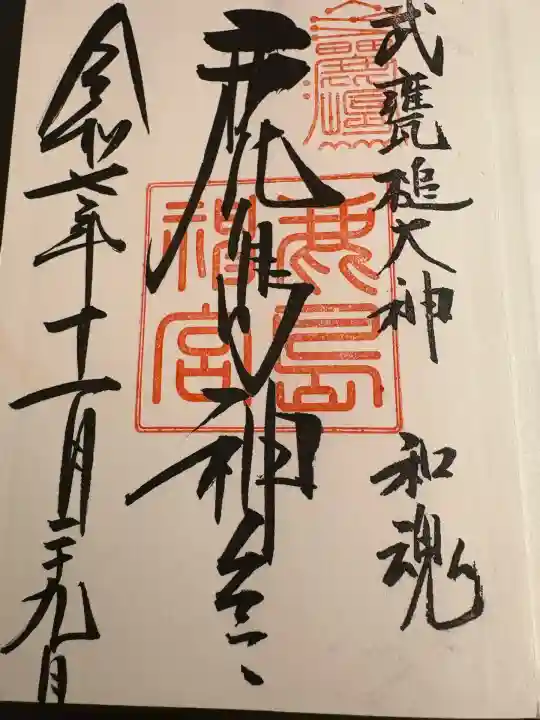 武甕槌大神 和魂
鹿島神宮
鹿島神宮
令和七年十一月二十九日